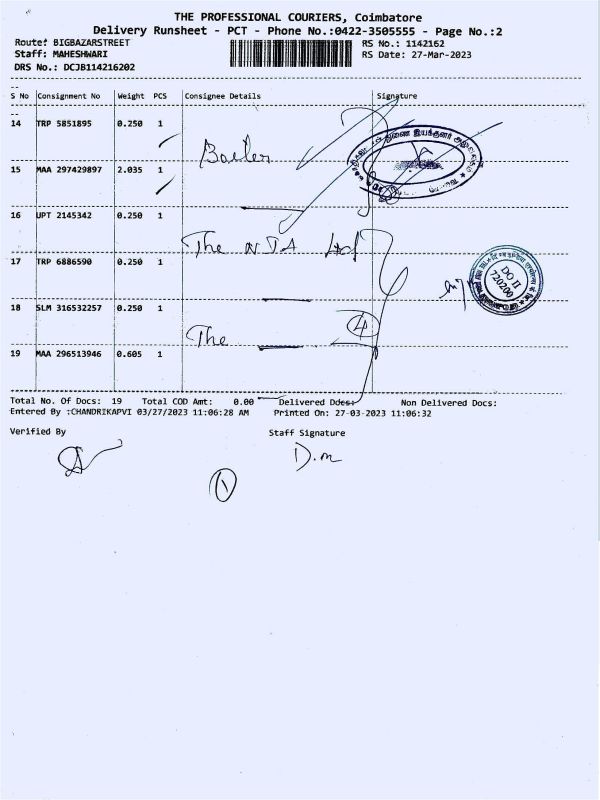 THE PROFESSIONAL COURIERS, Coimbatore
Delivery Runsheet - PCT - Phone No.:0422-3505555 - Page No.:2
Route: BIGBAZARSTREET RS No.: 1142162
Staff: MAHESHWARI RS Date: 27-Mar-2023
DRS No.: DCJB114216202
S No Consignment No Weight PCS Consignee Details Signature
14 TRP 5851895 0.250 1
15 MAA 297429897 2.035 1
16 UPT 2145342 0.250 1
The
17 TRP 6886590 0.250 1
DO II
720200
18 SLM 316532257 0.250 1
The 4
19 MAA 296513946 0.605 1
Total No. Of Docs: 19 Total COD Amt: 0.00 Delivered Docs: Non Delivered Docs:
Entered By :CHANDRIKAPVI 03/27/2023 11:06:28 AM Printed On: 27-03-2023 11:06:32
Verified By Staff Signature
D.m
1